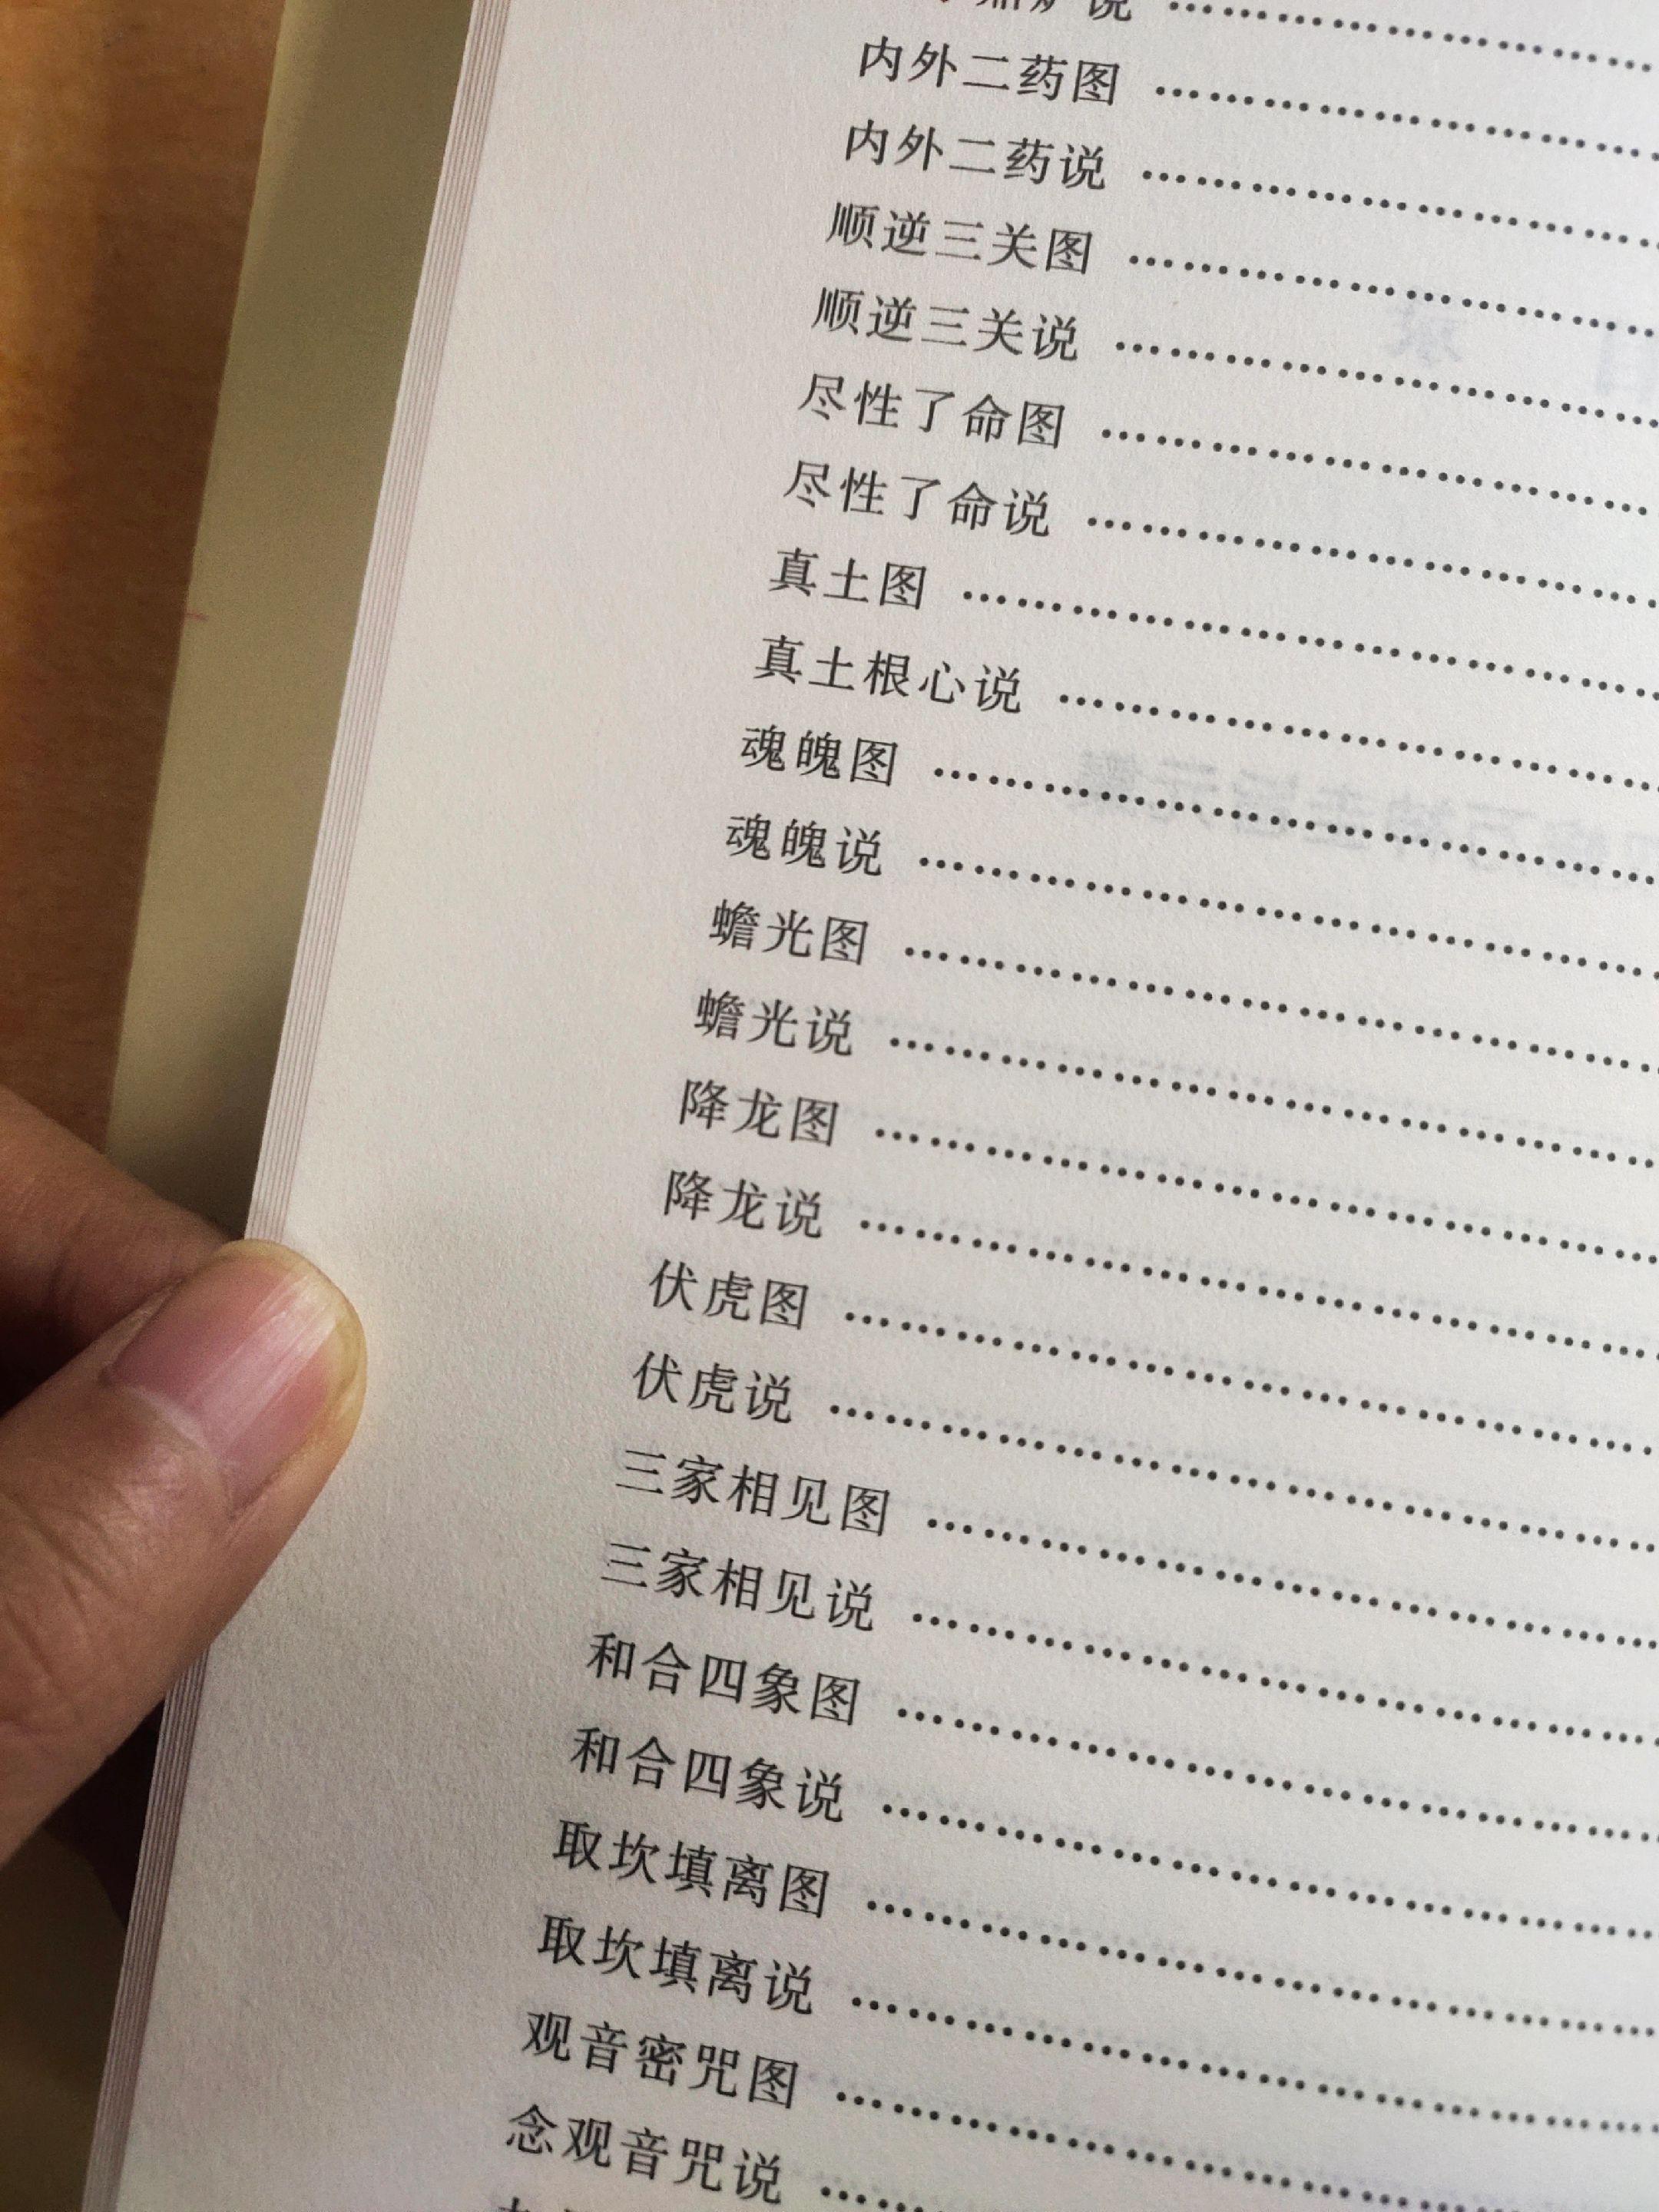 炉说
内外二药图
内外二药说
顺逆三关图
顺逆三关说
尽性了命图
尽性了命说
真土图
真土根心说
魂魄图
魂魄说
蟾光图
蟾光说
降龙图
降龙说
伏虎图
伏虎说
三家相见图
三家相见说
和合四象图
和合四象说
取坎填离图
取坎填离说
观音密咒图
念观音咒说